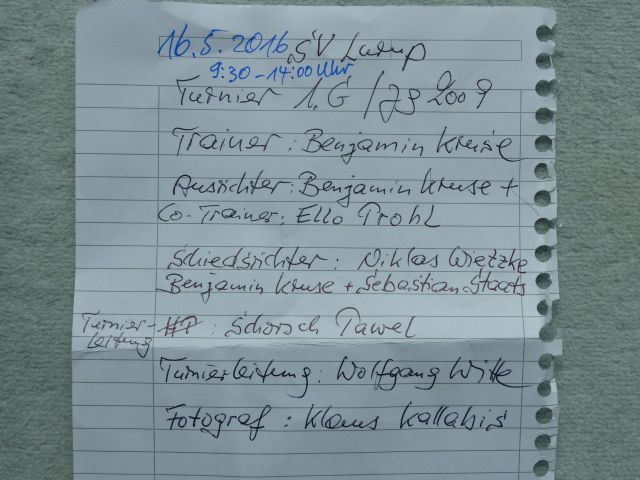 16.5.2016 SV Lurup
9:30-14:00 Uhr
Turnier 1.G / Jg 2009
Trainer: Benjamin Kruse
Ausrichter: Benjamin Kruse +
Co-Trainer: Ello Prohl
Schiedsrichter: Niklas Wietzke
Benjamin Kruse + Sebastian Staats
Turnier-leitung : Schorsch Pawel
Turnierleitung: Wolfgang Witte
Fotograf: Klaus Kallabis